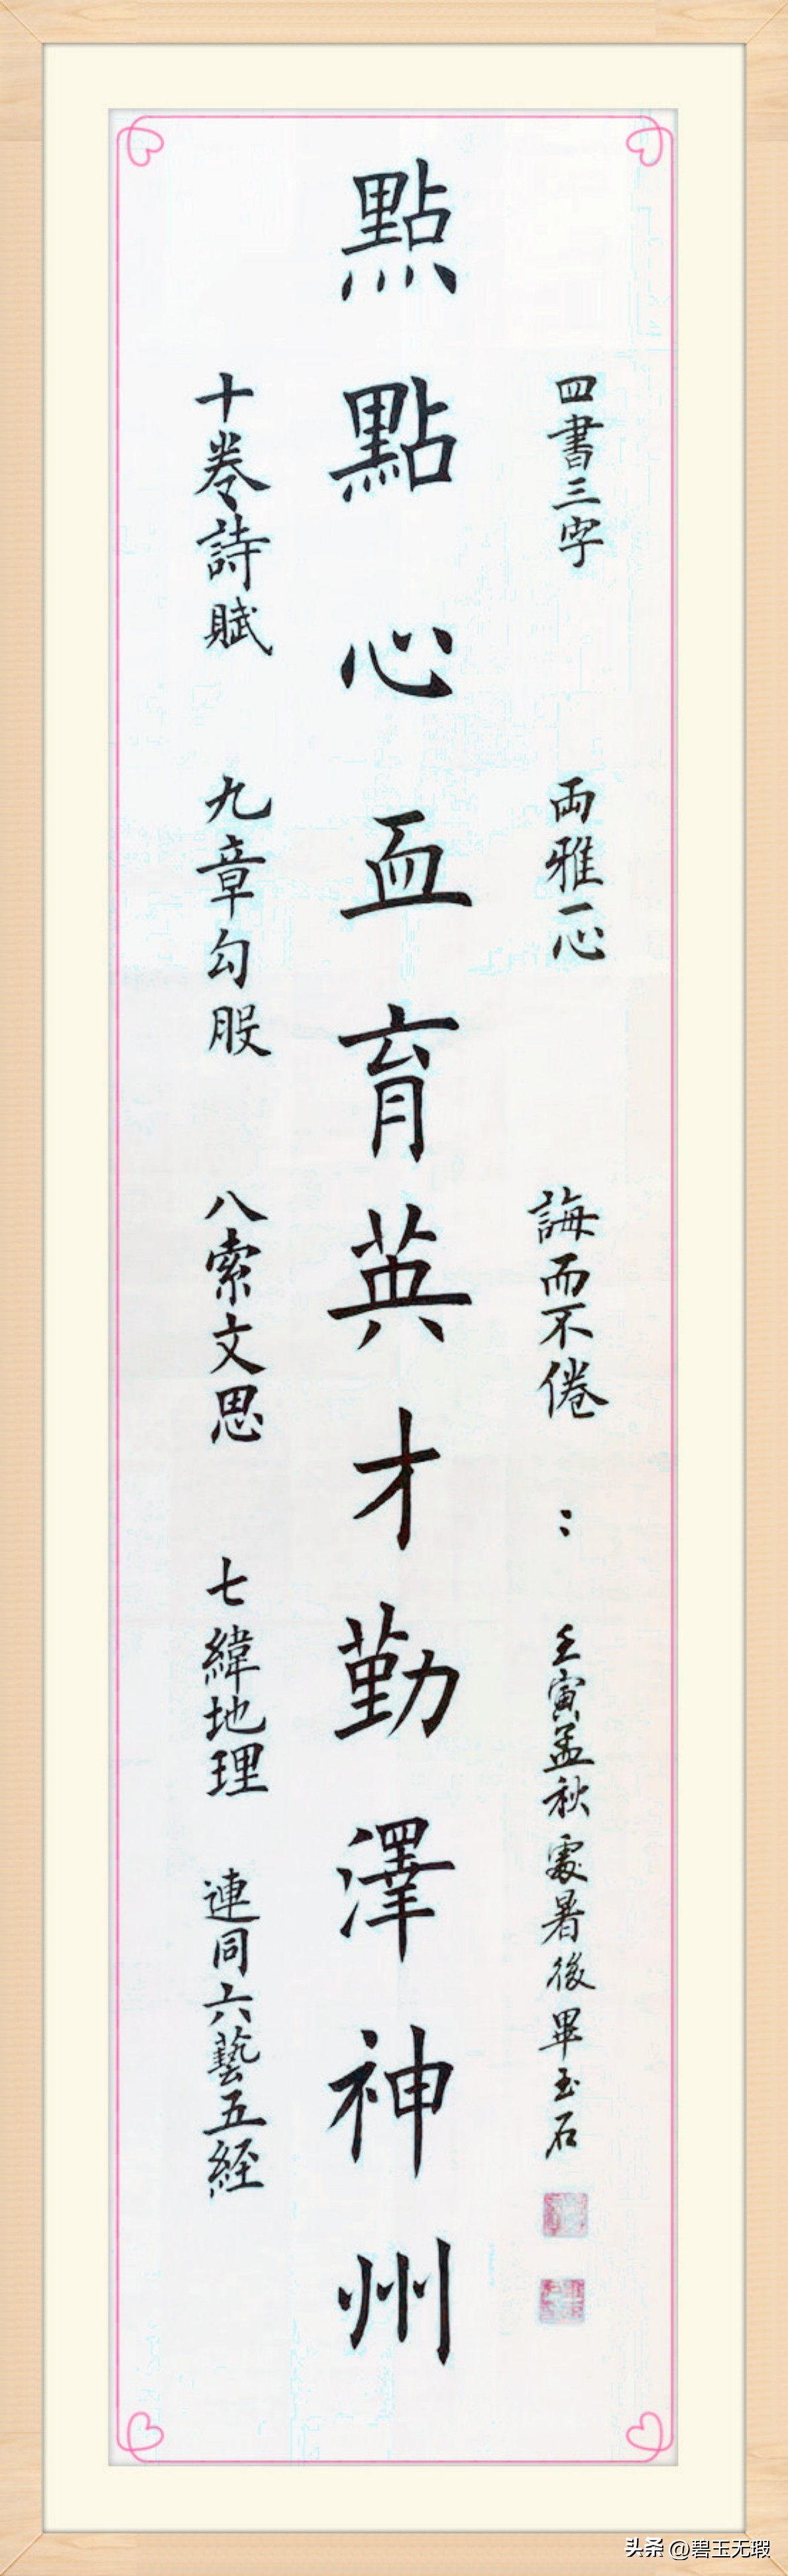 點點心血育英才勤澤神州
十卷詩賦 九章勾股 八索文思 七緯地理 連同六藝五経
四書三字 両雅一心 誨而不倦 : 壬寅孟秋處暑後畢玉石
头条 @碧玉无瑕